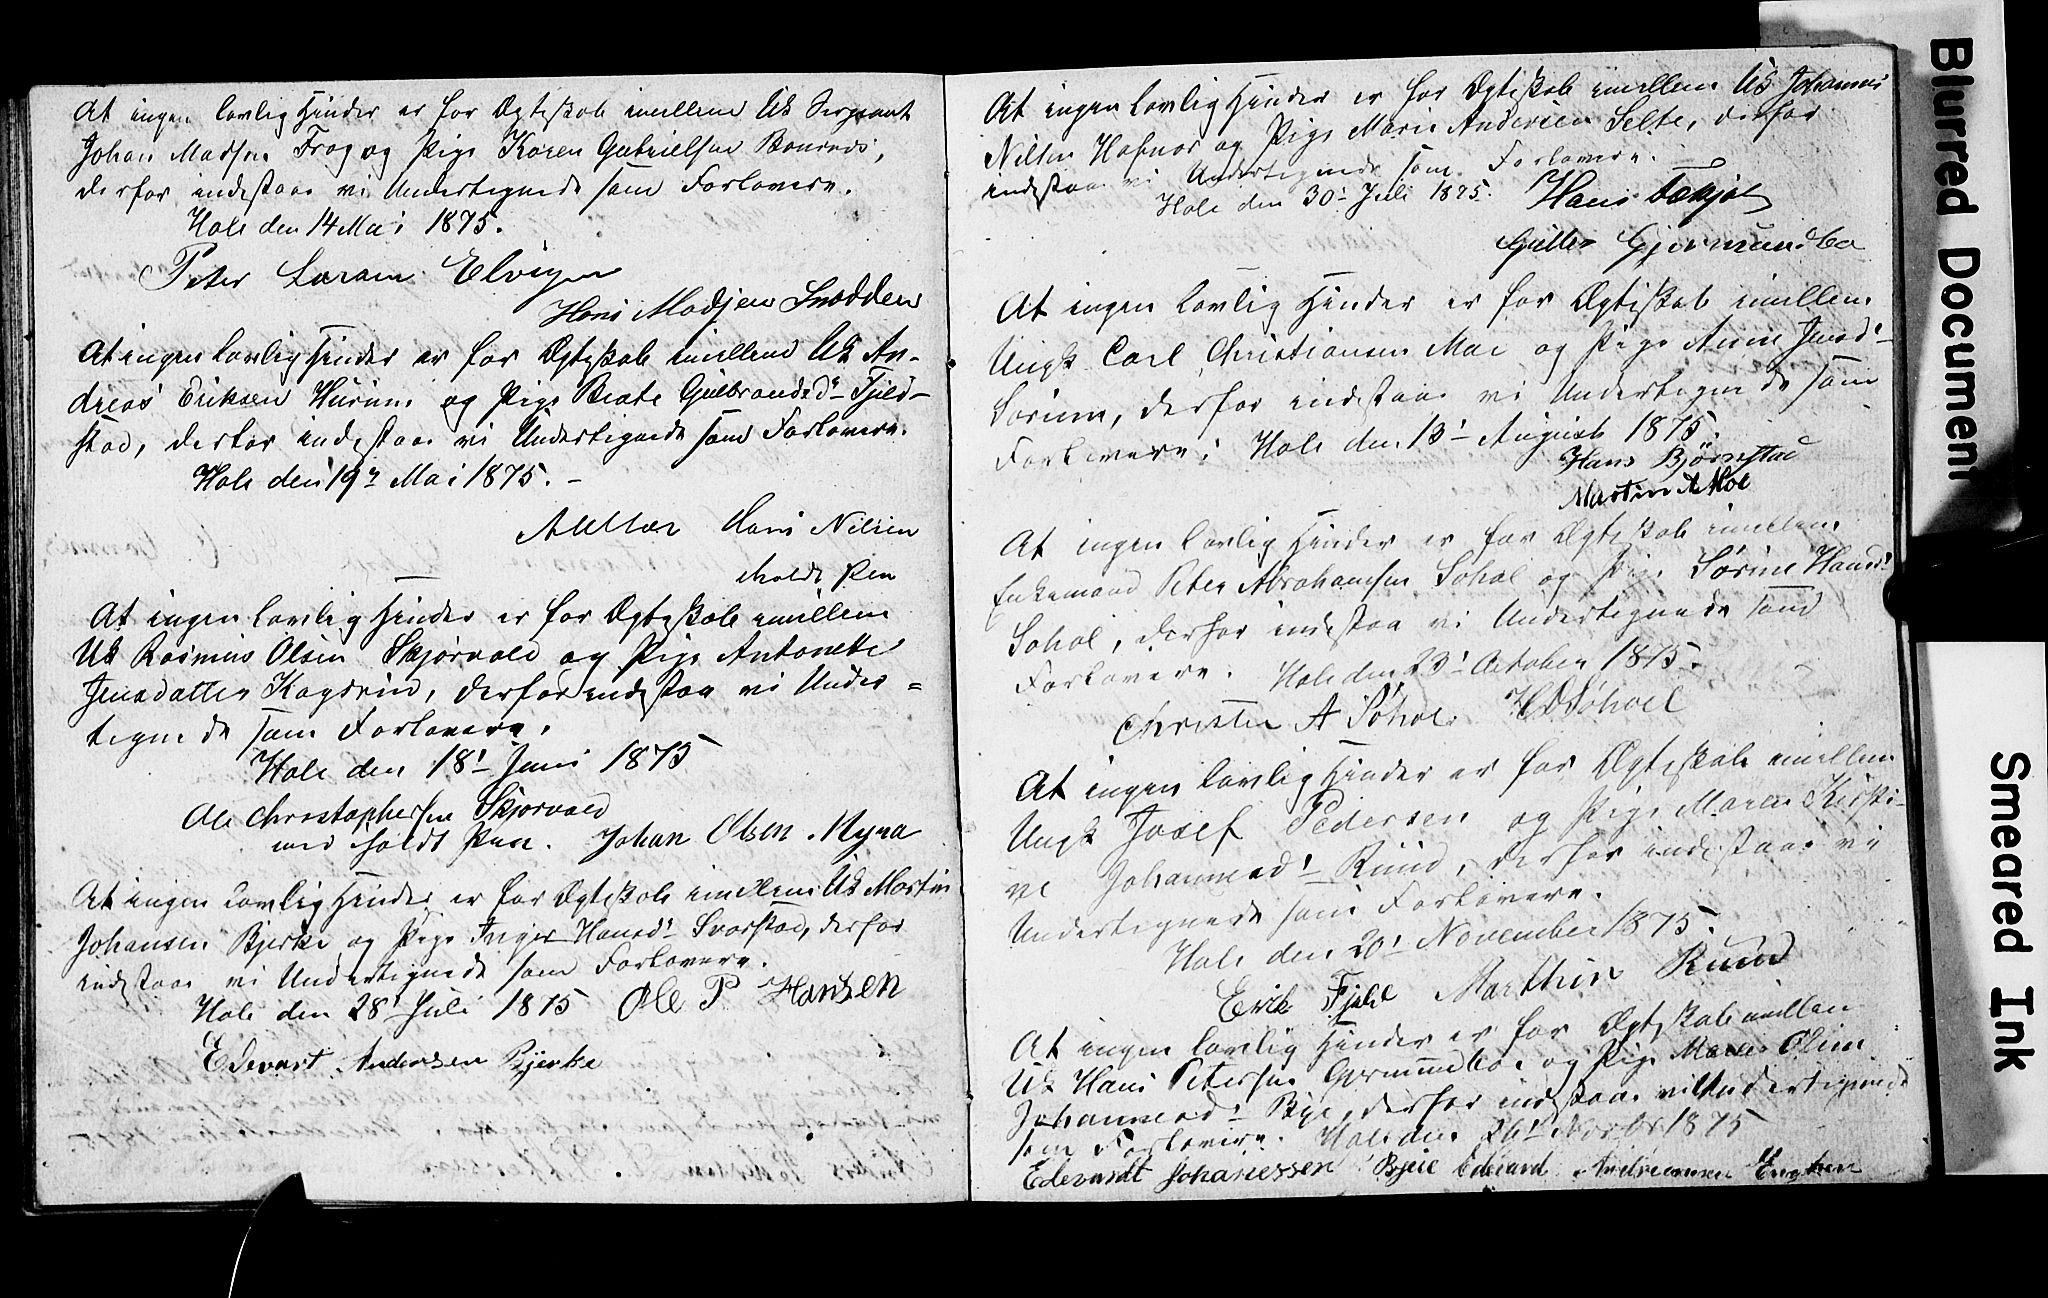 At ingen lovlig Hinder er for Ægteskab imellem Uk Sergeant
Johan Madsen Frog og Pige Karen Gabrielsen
derfor indestaa vi Undertegnede som Forlovere.
Hole den 14 Mai 1875.
Peter Elvigen
Hans Madsen Snadden
At ingen lovlig Hinder er for Ægteskab imellem Uk An-
dreas Eriksen Hurum og Pige Beate Gulbrandsd- Fjeld-
stad, derfor indestaa vi Undertegnede som Forlovere.
Hole den 19 Mai 1875. -
Hans Nilsen
holdt Pen
At ingen lovlig Hinder er for Ægteskab imellem
Uk Rasmus Olsen Skjørvold og Pige Antonette
Jensdatter derfor indestaa vi Under =
tegnede som Forlovere.
Hole den 18- Juni 1875
Ole Christophersen Skjørvold
med holdt Pen. Johan Olsen Myra
At ingen lovlig Hinder er for Ægteskab imellem Uk Martin
Johansen Bjerke og Pige Inger Hansd- Svarstad, derfor
indestaa vi Undertegnede som Forlovere.
Hole den 28 Juli 1875 Ole P Hansen
Edevart Andersen Bjerke
At ingen lovlig Hinder er for Ægteskab imellem Uk Johannes
Nilsen Hafnor og Pige Maria Andersen Selte, derfor
indestaa vi Undertegnede som Forlovere.
Hole den 30- Juli 1875. Hans
Gulle Gjermundbo
At ingen lovlig Hinder er for Ægteskab imellem
Ungk Carl Christiansen Moe og Pige Anne Jensd-
Sørum, derfor indestaa vi Undertegnede som
Forlovere. Hole den 13- August 1875.
Hans Bjørnstad
Martin A Moe
At ingen lovlig Hinder er for Ægteskab imellem
Enkemand Peter Abrahamsen Søhol og Pige Sørine Hansd-
Søhol, derfor indestaa vi Undertegnede som
Forlovere. Hole den 23- October 1875.
Christen A Søhol H Søhoel
At ingen lovlig Hinder er for Ægteskab imellem
Ungk Josef Pedersen og Pige Maren Kirsti-
ne Johannesd- Ruud, derfor indestaa vi
Undertegnede som Forlovere.
Hole den 20- November 1875.
Erik Fjeld Marthin Ruud
At ingen lovlig Hinder er for Ægteskab imellem
Uk Hans Petersen Gjermundboe og Pige Maren Oline
Johannesd- Bye, derfor indestaa vi Undertegnede
som Forlovere. Hole den 26- Novbr 1875
Edevardt Johanessen Bjerke Edevard Andreassen
Blurred Document
Smeared Ink